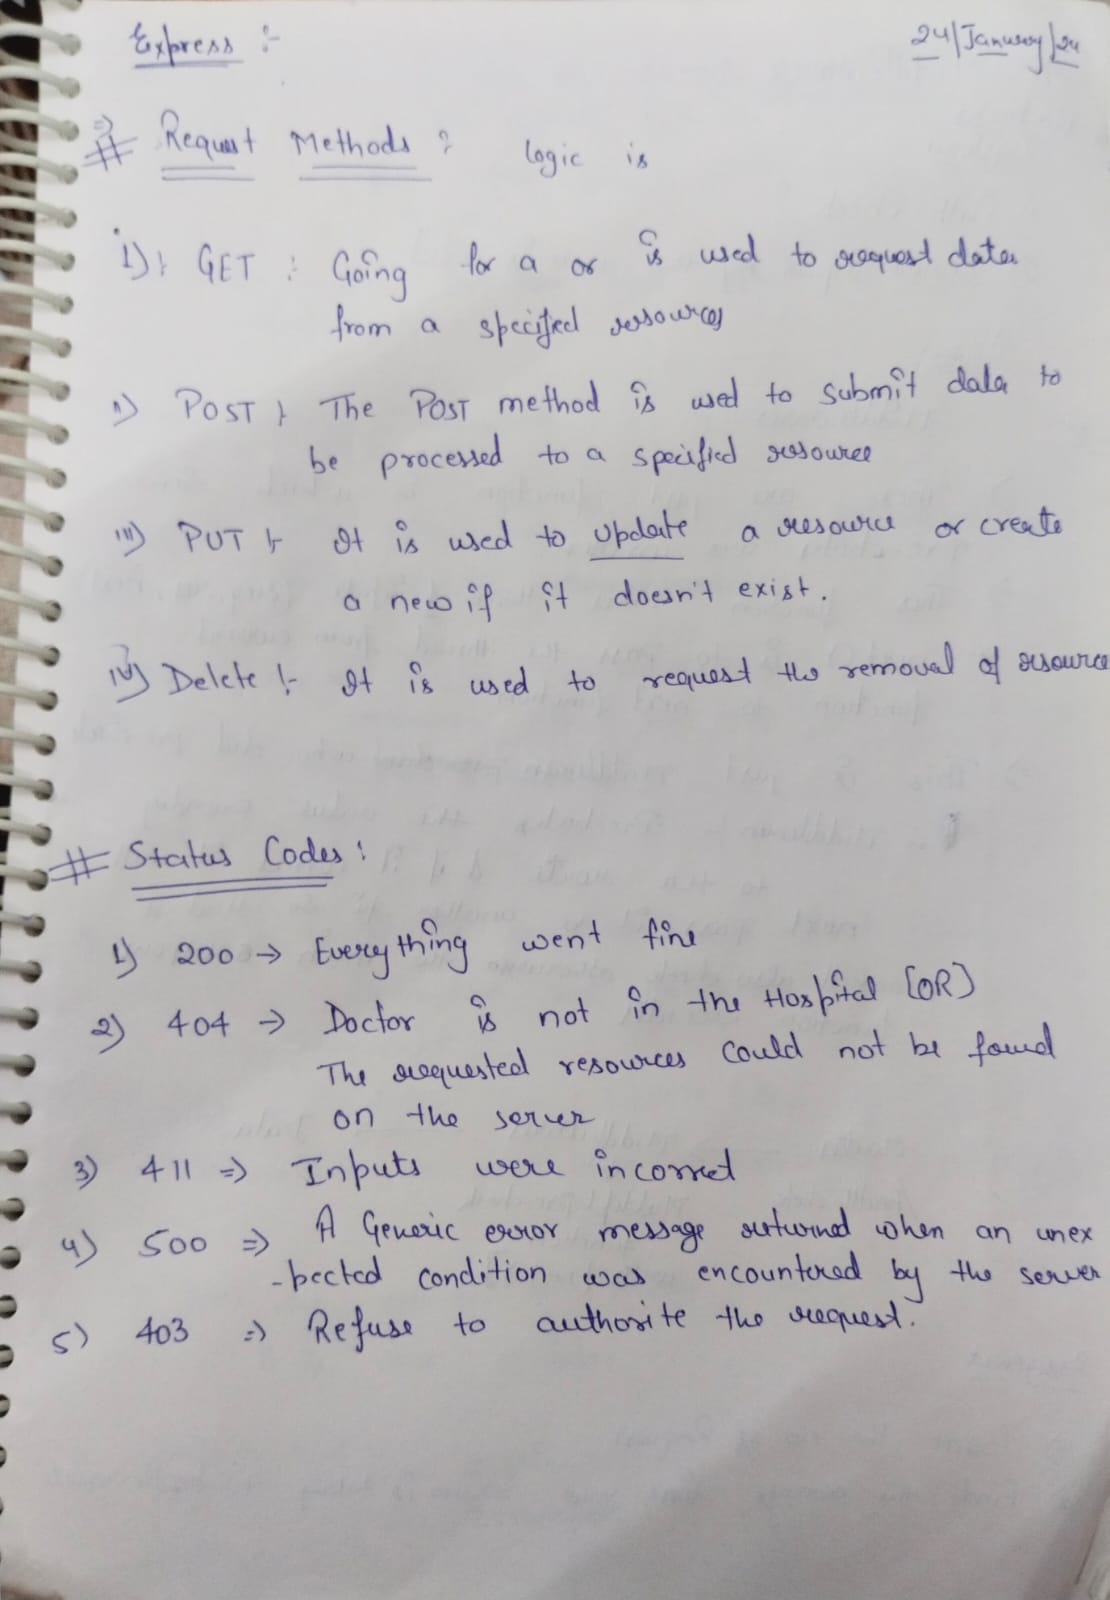 Express :-
24/January/24
=> # Request Methods : logic is
i) : GET : Going for a or is used to request data
from a specified resources
ii) POST :- The POST method is used to submit data to
be processed to a specified resource
iii) PUT :- It is used to update a resource or create
a new if it doesn't exist.
iv) Delete :- It is used to request the removal of resource
# Status Codes :
1) 200 → Everything went fine
2) 404 → Doctor is not in the Hospital [OR)
The requested resources could not be found
on the server
3) 411 => Inputs were incorrect
4) 500 => A Generic error message returned when an unex
-pected condition was encountered by the server
5) 403 => Refuse to authorite the request.